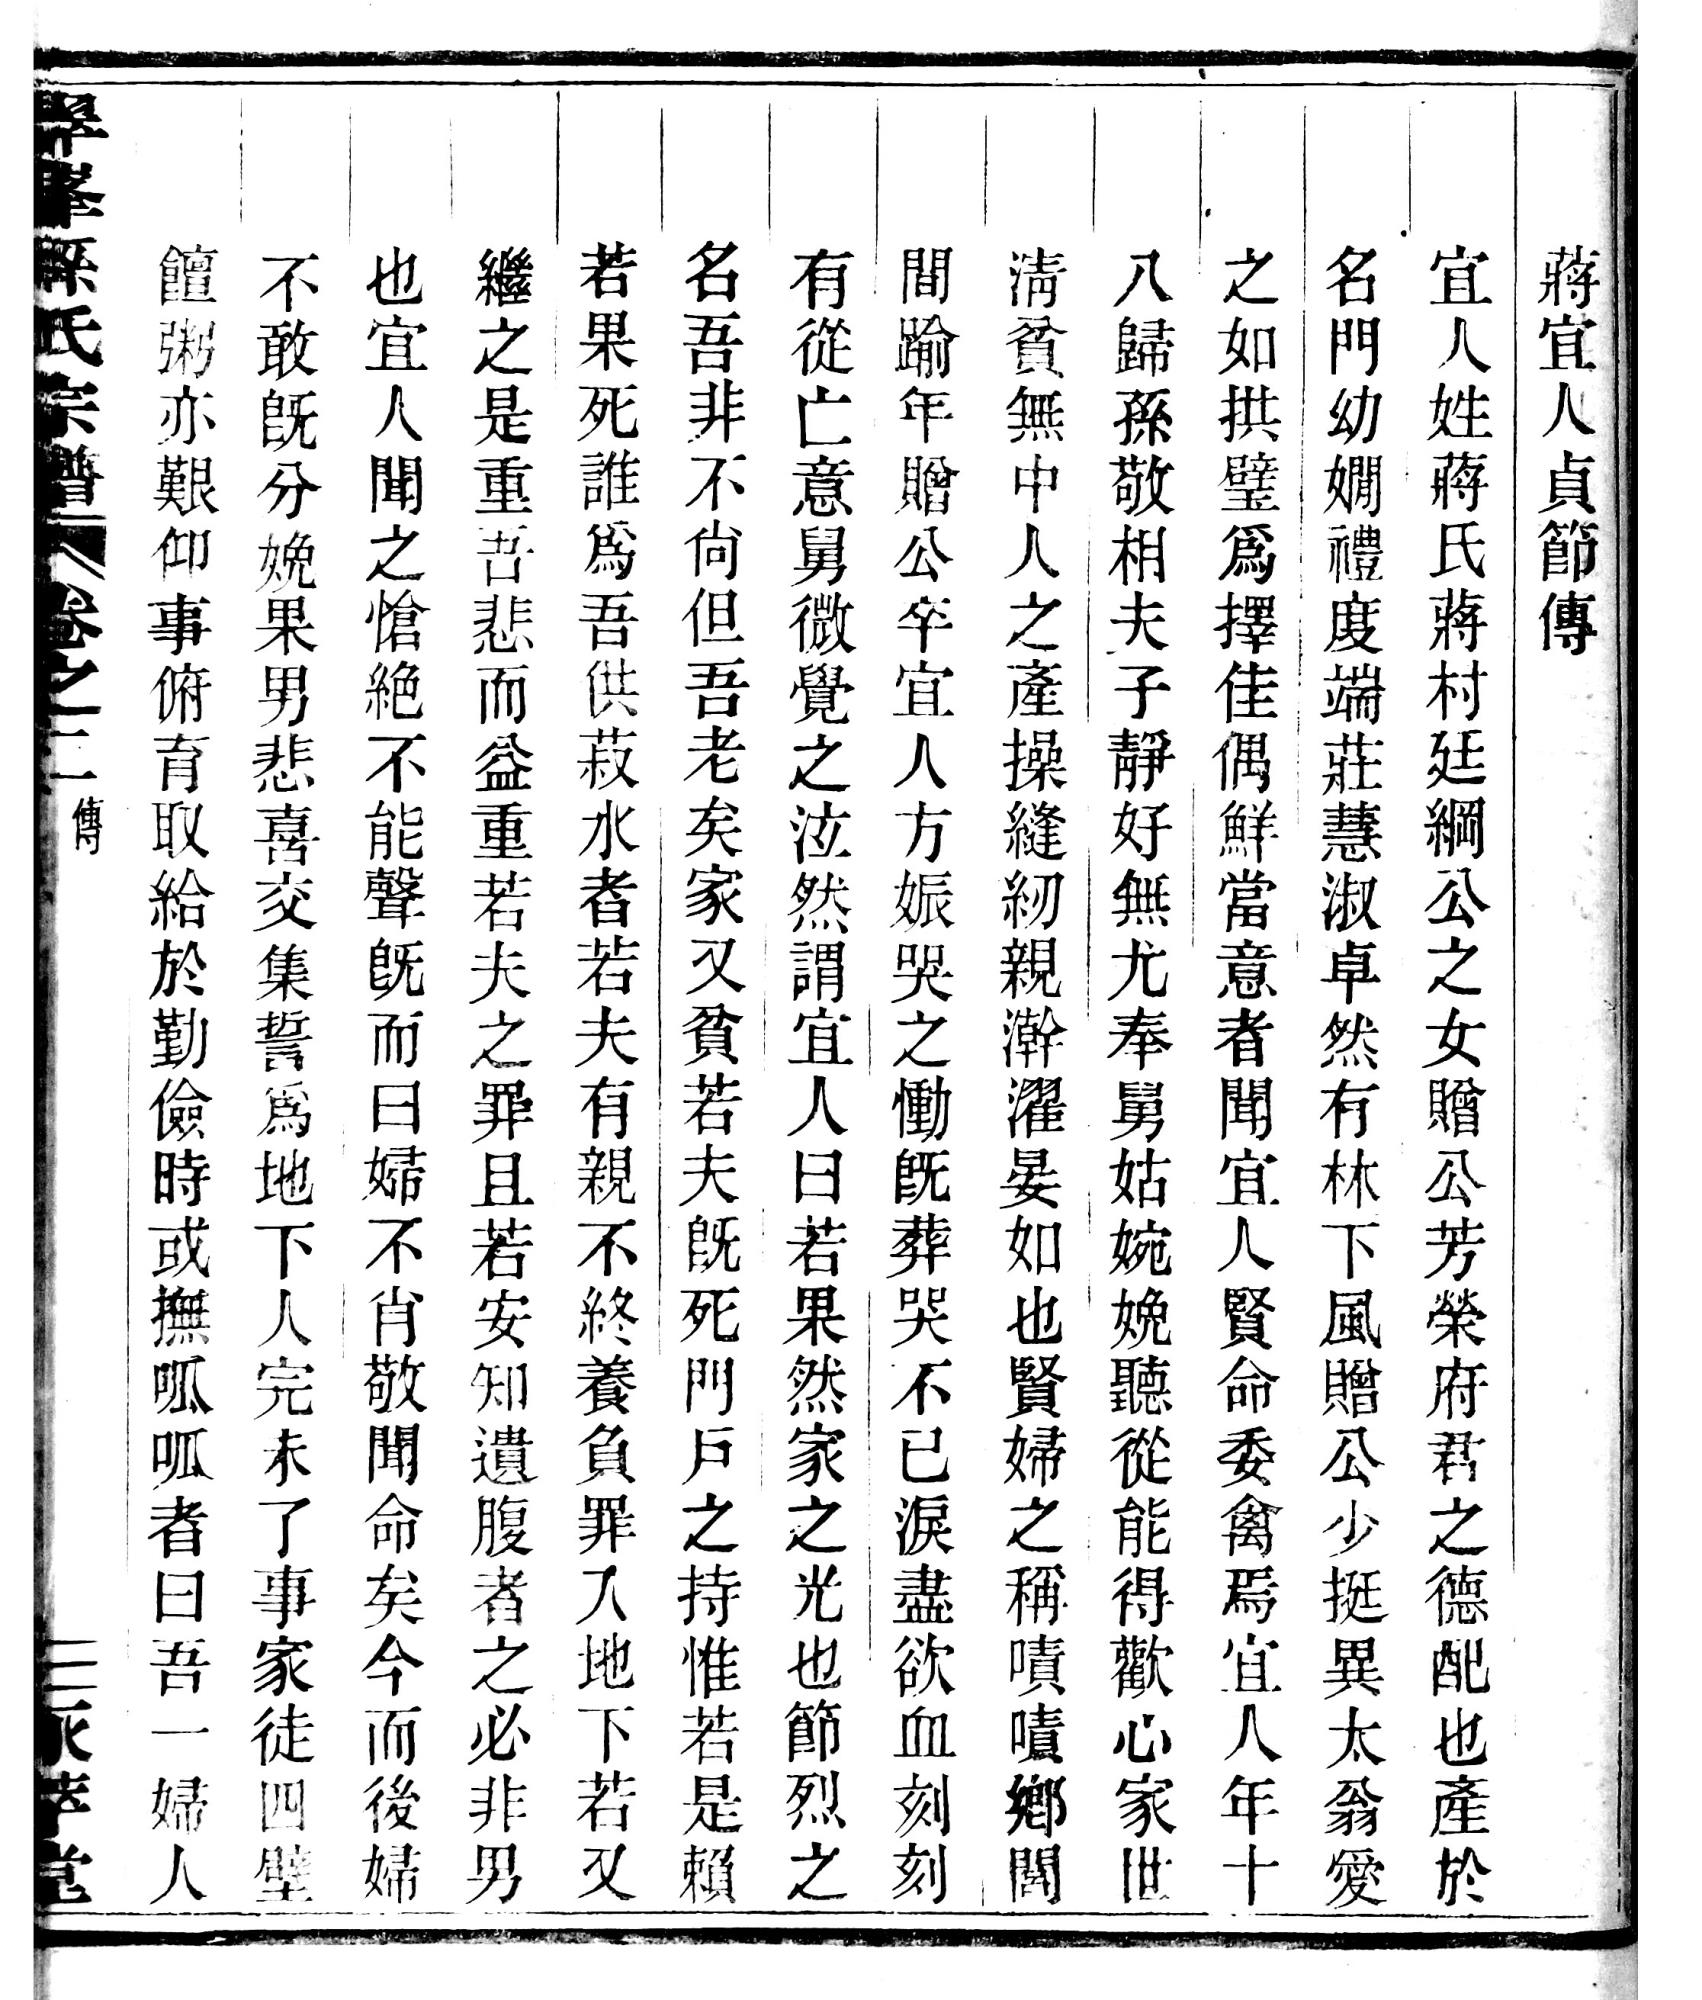 蔣宜人貞節傳
宜人姓蔣氏蔣村廷綱公之女贈公芳榮府君之德配也產於
名門幼嫺禮度端莊慧淑卓然有林下風贈公少挺異太翁愛
之如拱璧爲擇佳偶鮮當意者聞宜人賢命委禽焉宜人年十
八歸孫敬相夫子靜好無尤奉舅姑婉娩聽從能得歡心家世
淸貧無中人之產操縫紉親澣濯晏如也賢婦之稱嘖嘖鄉閭
間踰年贈公卒宜人方娠哭之慟旣葬哭不已淚盡欲血刻刻
有從亡意舅微覺之泣然謂宜人曰若果然家之光也節烈之
名吾非不尙但吾老矣家又貧若夫旣死門戶之持惟若是賴
若果死誰爲吾供菽水者若夫有親不終養負罪入地下若又
繼之是重吾悲而益重若夫之罪且若安知遺腹者之必非男
也宜人聞之愴絶不能聲旣而曰婦不肖敬聞命矣今而後婦
不敢旣分娩果男悲喜交集誓爲地下人完未了事家徒四壁
饘粥亦艱仰事俯育取給於勤儉時或撫呱呱者曰吾一婦人
孫氏宗譜 卷之二 傳